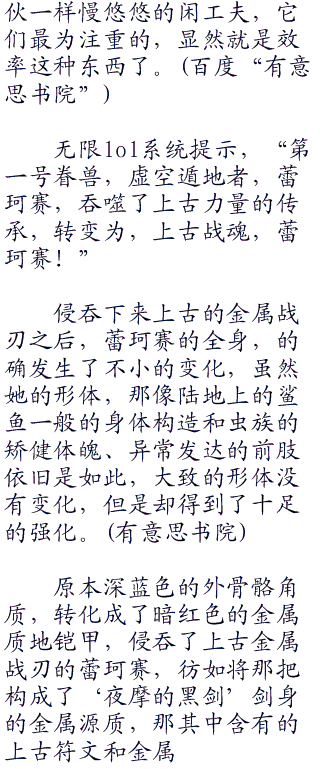 伙一样慢悠悠的闲工夫，它
们最为注重的，显然就是效
率这种东西了。(百度“有意
思书院”)
无限lol系统提示，“第
一号眷兽，虚空遁地者，蕾
珂赛，吞噬了上古力量的传
承，转变为，上古战魂，蕾
珂赛！”
侵吞下来上古的金属战
刃之后，蕾珂赛的全身，的
确发生了不小的变化，虽然
她的形体，那像陆地上的鲨
鱼一般的身体构造和虫族的
矫健体魄、异常发达的前肢
依旧是如此，大致的形体没
有变化，但是却得到了十足
的强化。(有意思书院)
原本深蓝色的外骨骼角
质，转化成了暗红色的金属
质地铠甲，侵吞了上古金属
战刃的蕾珂赛，彷如将那把
构成了‘夜摩的黑剑’剑身
的金属源质，那其中含有的
上古符文和金属